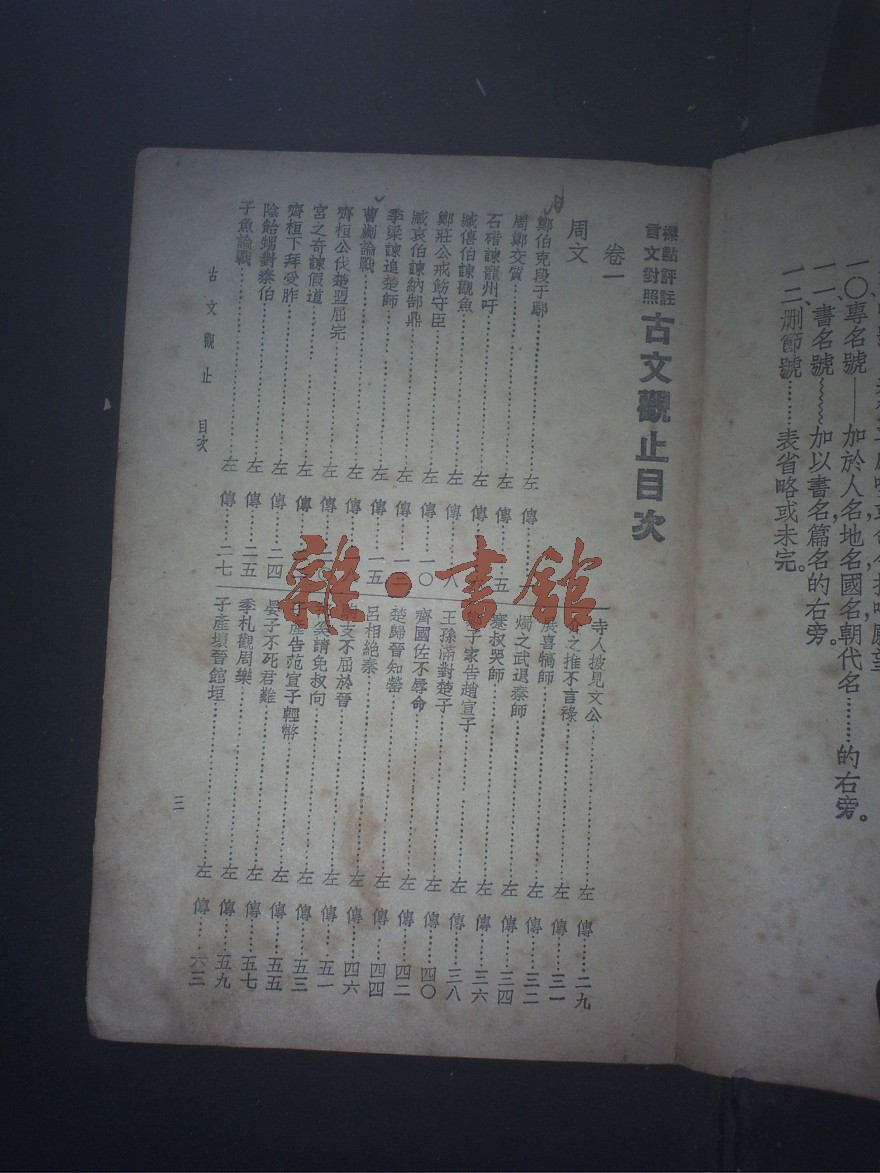 一〇、專名號——加於人名地名國名朝代名………的右旁。
一一、書名號﹏﹏加以書名篇名的右旁。
一二、刪節號……表省略或未完。
標點評註
言文對照
古文觀止目次
卷一
周文
鄭伯克段于鄢……左傳
周鄭交質……左傳……五
石碏諫寵州吁……左傳
臧僖伯諫觀魚……左傳……八
鄭莊公戒飭守臣……左傳
臧哀伯諫納郜鼎……左傳……一〇
季梁諫追楚師……左傳……一三
曹劌論戰……左傳……一五
齊桓公伐楚盟屈完……左傳
宮之奇諫假道……左傳
齊桓下拜受胙……左傳
陰飴甥對秦伯……左傳……二四
子魚論戰……左傳……二五
左傳……二七
寺人披見文公……左傳……二九
之推不言祿……左傳……三一
展喜犒師……左傳……三二
燭之武退秦師……左傳……三四
蹇叔哭師……左傳……三六
子家告趙宣子……左傳……三八
王孫滿對楚子……左傳……四〇
齊國佐不辱命……左傳……四二
楚歸晉知罃……左傳……四四
呂相絕秦……左傳……四六
支不屈於晉……左傳……五一
奚請免叔向……左傳……五三
產告范宣子輕幣……左傳……五五
晏子不死君難……左傳……五七
季札觀周樂……左傳……五九
子產壞晉館垣……左傳……六三
古文觀止 目次
三
雜·書館